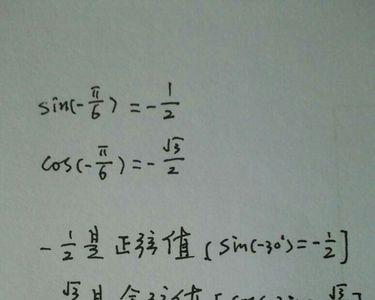 sin(-π/6) = -1/2
cos(-π/6) = -√3/2
-1/2是正弦值[sin(-30°)=-1/2]
√3是余弦值[cos(-30°)=√3]